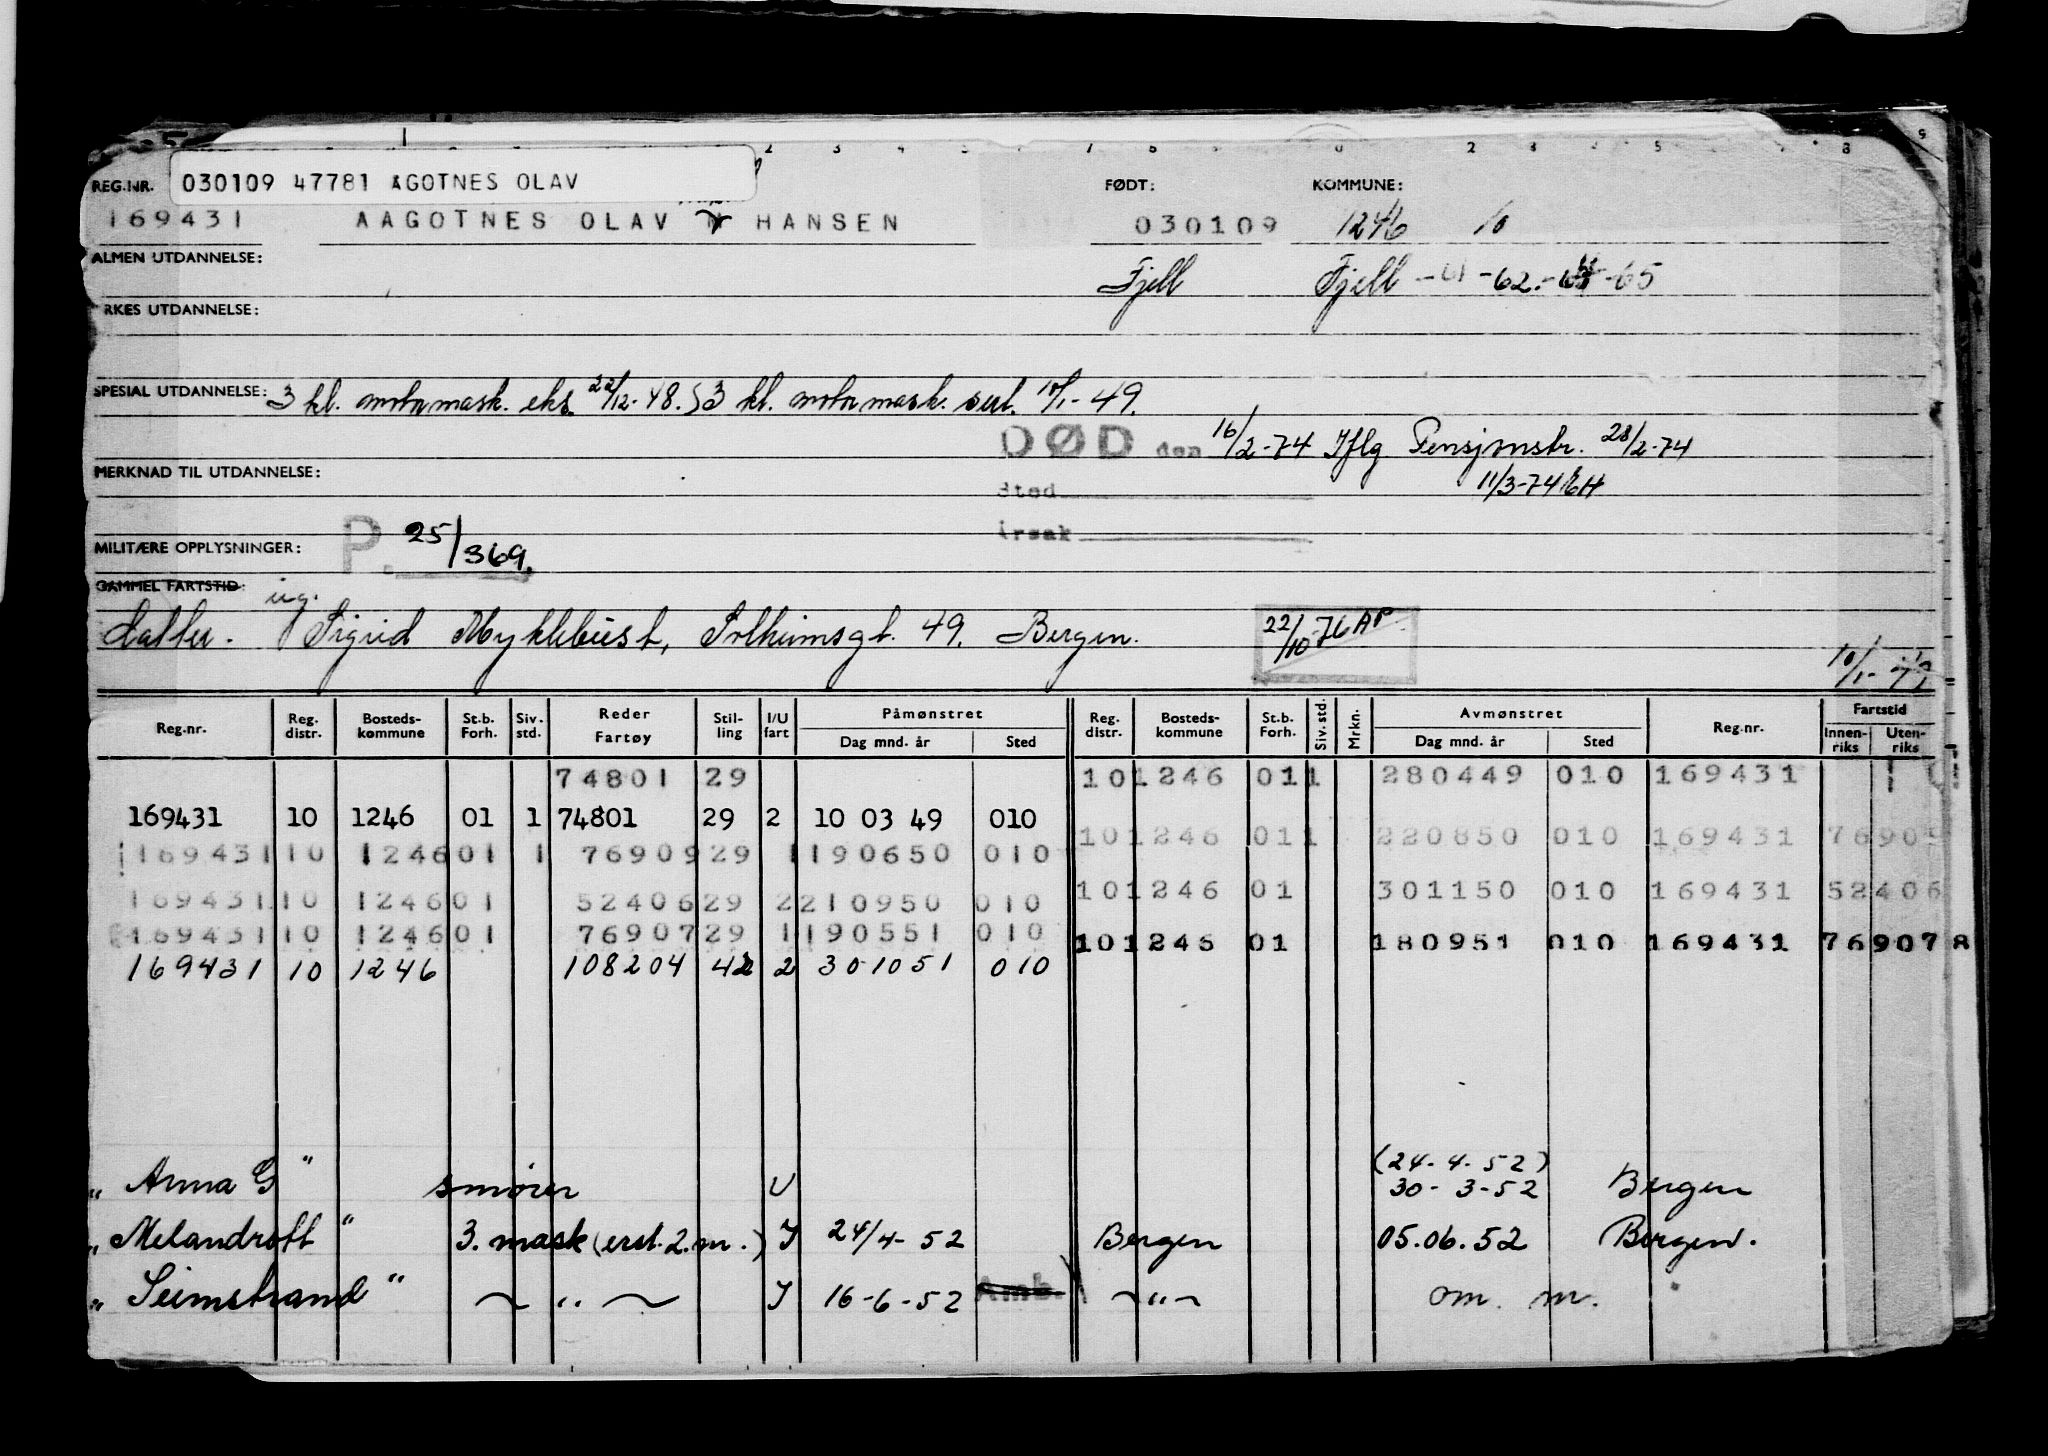 030109 47781 AGOTNES OLAV
REG.NR. FØDT: KOMMUNE:
169431 AAGOTNES OLAV HANSEN 030109 1246 10
ALMEN UTDANNELSE:
Fjell Fjell -62.- -65
RKES UTDANNELSE:
SPESIAL UTDANNELSE: 3 kl. motormask. eks. 22/12-48. 3 kl. motormask. sert. 10/1-49.
DØD den 16/2-74 Iflg Pensjonstr. 28/2-74
MERKNAD TIL UTDANNELSE: 11/3-74 EH
Sted
MILITÆRE OPPLYSNINGER: P. 25/369. Årsak
GAMMEL FARTSTID: ug.
datter. Sigrid Myklebust, Solheimsgt. 49. Bergen. 22/10-76 AP
10/1-
Reg.nr. Reg. distr. Bosteds-kommune St.b. Forh. Siv. std. Reder Fartøy Stil-ling I/U fart Påmønstret Dag mnd. år Sted Reg. distr. Bosteds-kommune St.b. Forh. Siv. std. Mrkn. Avmønstret Dag mnd. år Sted Reg.nr. Fartstid Innen-riks Uten-riks
74801 29 10 1246 01 1 280449 010 169431
169431 10 1246 01 1 74801 29 2 10 03 49 010
10 1246 01 1 220850 010 169431 7690
169431 10 1246 01 1 76909 29 1 190650 010
10 1246 01 301150 010 169431 52406
169431 10 1246 01 52406 29 2 210950 010
169431 10 1246 01 76907 29 1 190551 010
10 1246 01 180951 010 169431 76907 8
169431 10 1246 108204 42 2 301051 010
(24-4-52)
„ Anna G " smører U 30-3-52 Bergen
„ Melandrott " 3. mask (erst. 2. m.) I 24/4-52 Bergen 05.06.52 Bergen.
„ Seimstrand " ~ " ~ I 16-6-52 Amb. ~"~ om. m.